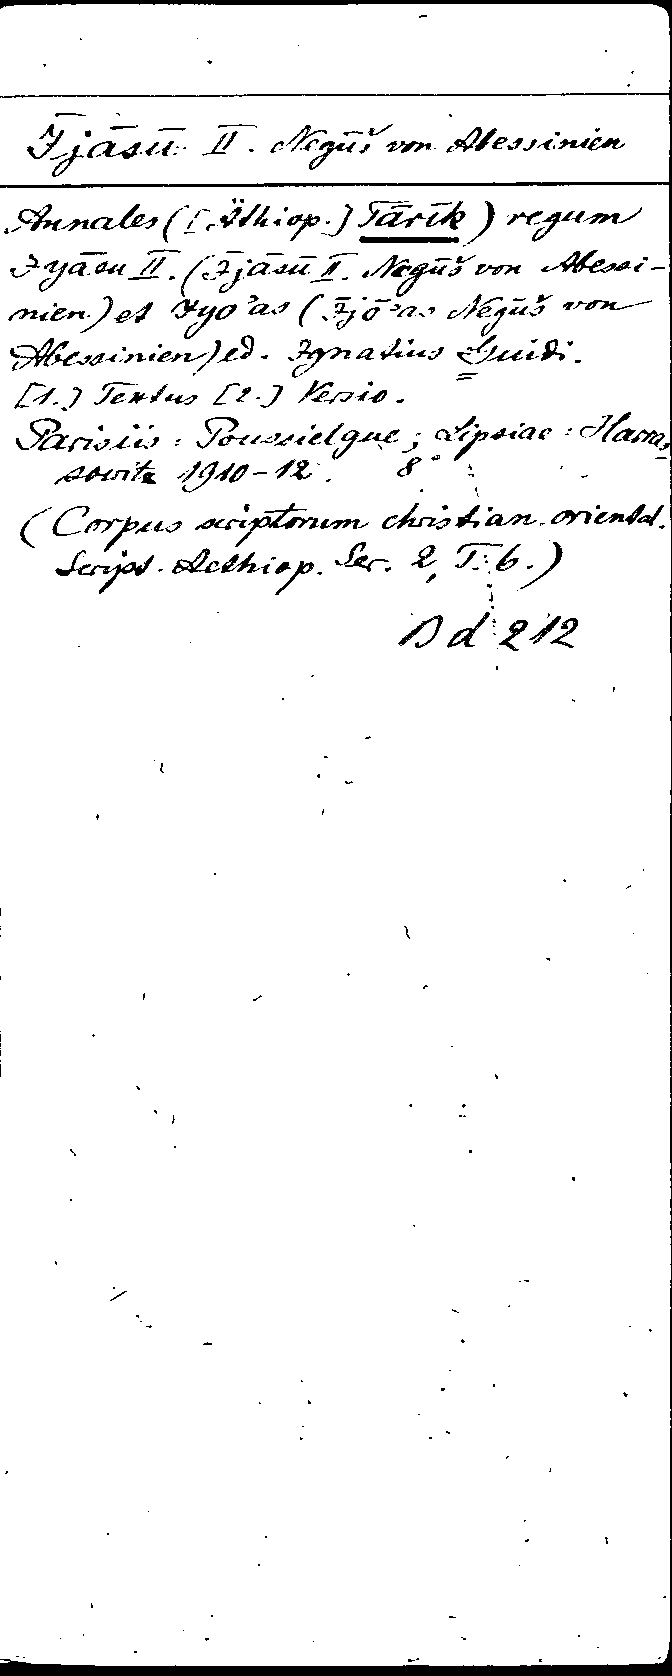 Ījāsū II. Negūš von Abessinien
Annales ([Äthiop.] Tārīk) regum
Iyāsu II. (Ījāsū II. Negūš von Abessi-
nien) et Iyo'as (Ījō'as Negūš von
Abessinien) ed. Ignatius Guidi.
[1.] Textus [2.] Versio.
Parisiis: Poussielgue; Lipsiae: Harras-
sowitz 1910-12. 8°
(Corpus scriptorum christian. oriental.
Script. Aethiop. Ser. 2, T. 6.)
Bd 212